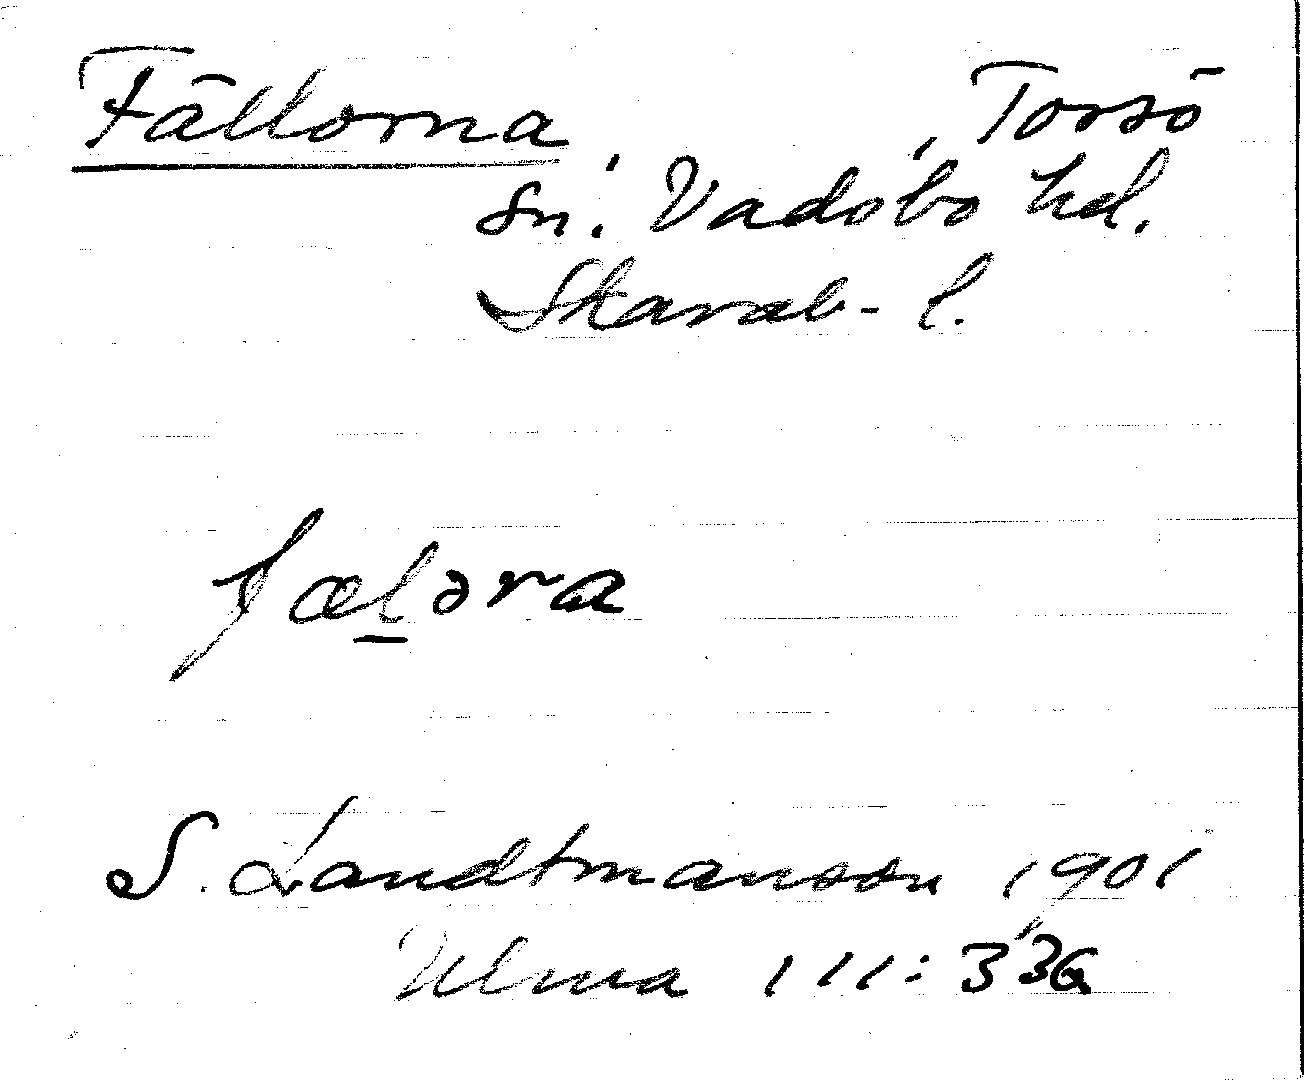 Fällorna, Torsö
sn. Vadsbo hd.
Skarab. l.
fæl̲əra
S. Landtmanson 1901
Ulma 111:336